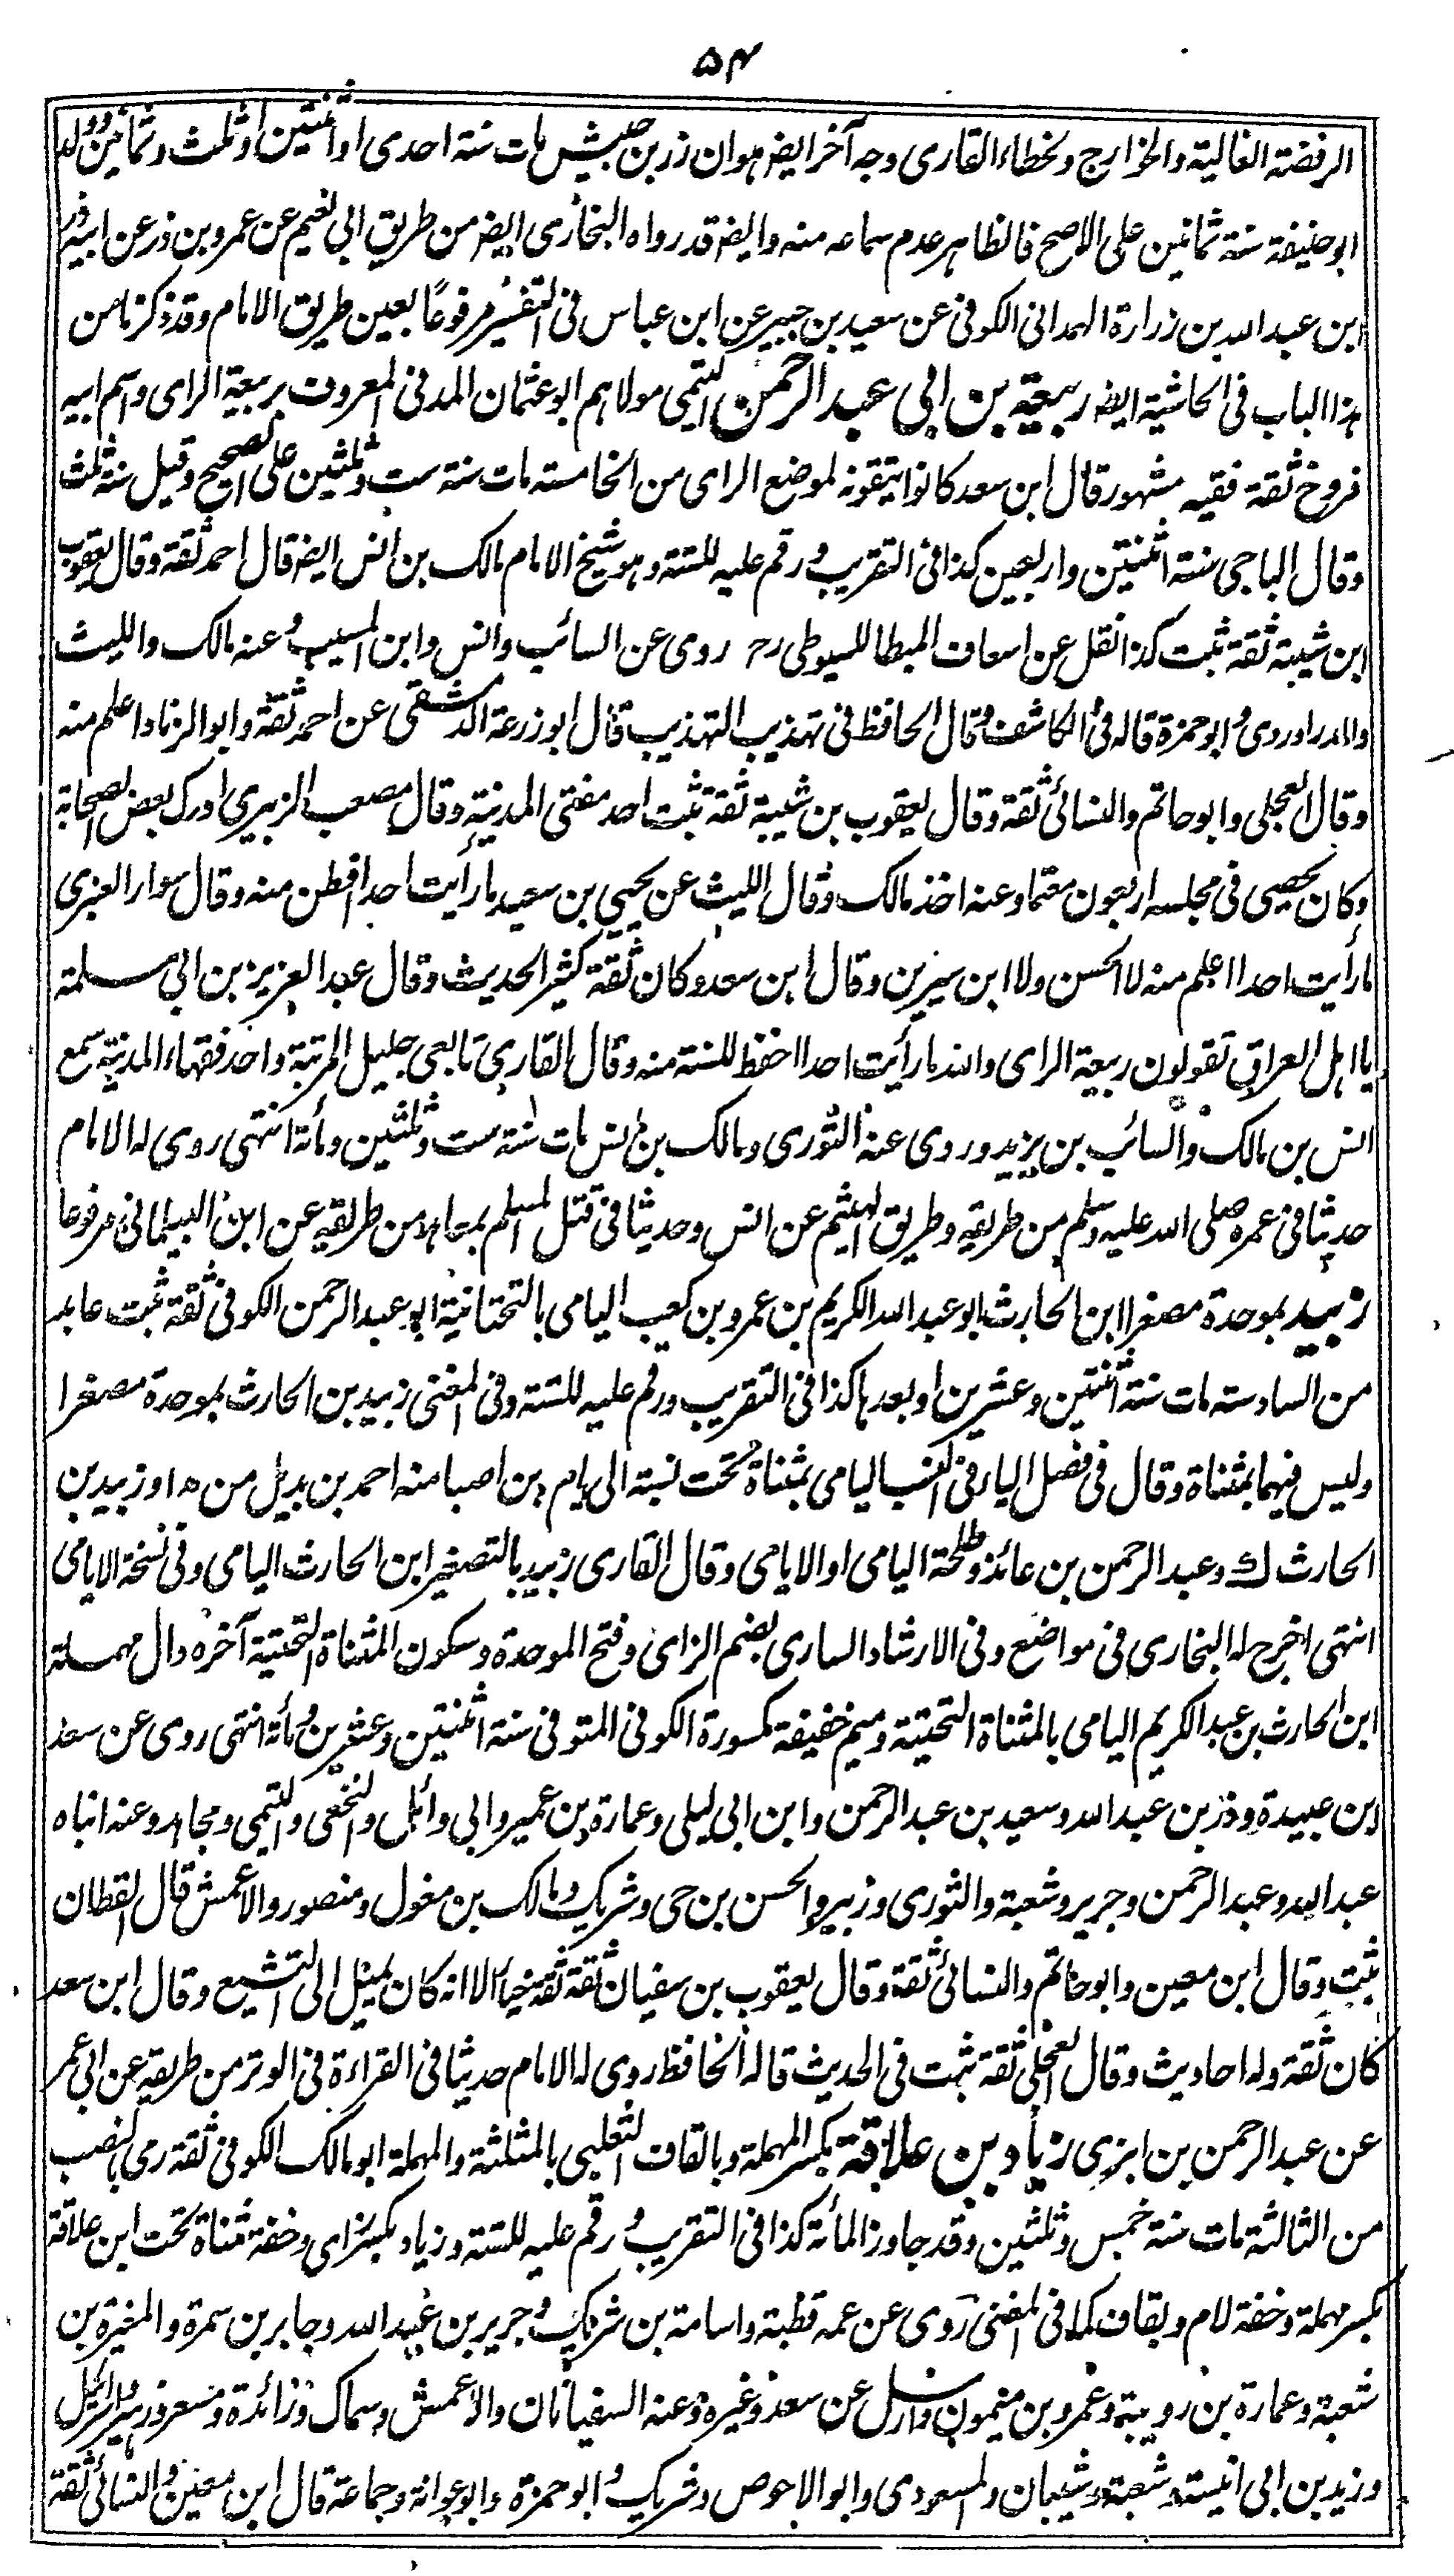 ۵۴
الرفضة الغالية والخوارج ولخطاء القارى وجه آخر ايضا هو ان زر بن حبيش مات سنة احدى او اثنتين او ثلث وثمانين وولد
ابو حنيفة سنة ثمانين على الاصح فالظاهر عدم سماعه منه وايضا قد رواه البخارى ايضا من طريق ابى نعيم عن عمرو بن ذر عن ابيه ذر
ابن عبد الله بن زرارة الهمدانى الكوفى عن سعيد بن جبير عن ابن عباس فى التفسير مرفوعًا بعين طريق الامام وقد ذكرنا من
هذا الباب فى الحاشية ايضا ربيعة بن ابى عبد الرحمن التيمى مولاهم ابو عثمان المدنى المعروف بربيعة الراى واسم ابيه
فروخ ثقة فقيه مشهور قال ابن سعد كانوا يتقونه لموضع الراى من الخامسة مات سنة ست وثلثين على الصحيح وقيل سنة ثلث
وقال الباجى سنة اثنتين واربعين كذا فى التقريب ورقم عليه للستة وهو شيخ الامام مالك بن انس ايضا قال احمد ثقة وقال يعقوب
ابن شيبة ثقة ثبت كذا نقل عن اسعاف المبطا للسيوطى رح روى عن السائب وانس وابن المسيب وعنه مالك والليث
والدراوردى وابو حمزة قاله فى الكاشف وقال الحافظ فى تهذيب التهذيب قال ابو زرعة الدمشقى عن احمد ثقة وابو الزناد اعلم منه
وقال العجلى وابو حاتم والنسائى ثقة وقال يعقوب بن شيبة ثقة ثبت احد مفتى المدينة وقال مصعب الزبيرى ادرك بعض الصحابة
وكان يحصى فى مجلسه اربعون معتما وعنه اخذ مالك وقال الليث عن يحيى بن سعيد ما رأيت احدا افطن منه وقال سوار العنبرى
ما رأيت احدا اعلم منه لا الحسن ولا ابن سيرين وقال ابن سعد وكان ثقة كثير الحديث وقال عبد العزيز بن ابى سلمة
يا اهل العراق تقولون ربيعة الراى والله ما رأيت احدا احفظ للسنة منه وقال القارى تابعى جليل المرتبة واحد فقهاء المدينة سمع
انس بن مالك والسائب بن يزيد وروى عنه الثورى ومالك بن انس مات سنة ست وثلثين ومأة انتهى روى له الامام
حديثا فى عمره صلى الله عليه وسلم من طريقه وطريق الهيثم عن انس وحديثا فى قتل المسلم بمعاهد من طريقه عن ابن البيلمانى مرفوعا
زبيد بموحدة مصغرا ابن الحارث ابو عبد الله الكريم بن عمرو بن كعب اليامى بالتحتانية ابو عبد الرحمن الكوفى ثقة ثبت عابد
من السادسة مات سنة اثنتين وعشرين او بعدها كذا فى التقريب ورقم عليه للستة وفى المغنى زبيد بن الحارث بموحدة مصغرا
وليس فيهما بمثناة وقال فى فصل الياء فى النسب اليامى بمثناة تحت نسبة الى يام بن اصبا منه احمد بن بديل من ١٥ وزبيد بن
الحارث ك وعبد الرحمن بن عائذ وطلحة اليامى او الايامى وقال القارى زبيد بالتصغير ابن الحارث اليامى وفى نسخة الايامى
انتهى اخرج له البخارى فى مواضع وفى الارشاد السارى بضم الزاى وفتح الموحدة وسكون المثناة التحتية آخره دال مهملة
ابن الحارث بن عبد الكريم اليامى بالمثناة التحتية وميم خفيفة مكسورة الكوفى المتوفى سنة اثنتين وعشرين ومأة انتهى روى عن سعد
ابن عبيدة وذر بن عبد الله وسعيد بن عبد الرحمن وابن ابى ليلى وعمارة بن عمير وابى وائل والنخعى والتيمى ومجاهد وعنه ابناه
عبد الله وعبد الرحمن وجرير وشعبة والثورى وزبير والحسن بن حى وشريك ومالك بن مغول ومنصور والاعمش قال القطان
ثبت وقال ابن معين وابو حاتم والنسائى ثقة وقال يعقوب بن سفيان ثقة ثقة خيار الا انه كان يميل الى التشيع وقال ابن سعد
كان ثقة وله احاديث وقال العجلى ثقة ثبت فى الحديث قاله الحافظ روى له الامام حديثا فى القراءة فى الوتر من طريقه عن ابى عمر
عن عبد الرحمن بن ابزى زياد بن علاقة بكسر المهملة وبالقاف الثعلبى بالمثلثة والمهملة ابو مالك الكوفى ثقة رمى بالنصب
من الثالثة مات سنة خمس وثلثين وقد جاوز المأة كذا فى التقريب ورقم عليه للستة وزياد بكسر زاى وخفة مثناة تحت ابن علاقة
بكسر مهملة وخفة لام وبقاف كما فى المغنى روى عن عمه قطبة واسامة بن شريك وجرير بن عبد الله وجابر بن سمرة والمغيرة بن
شعبة وعمارة بن رويبة وعمرو بن ميمون وارسل عن سعد وغيره وعنه السفيانان والاعمش وسماك وزائدة ومسعر وزهير واسرائيل
وزيد بن ابى انيسة وشعبة وشيبان والمسعودى وابو الاحوص وشريك وابو حمزة وابو عوانة وجماعة قال ابن معين والنسائى ثقة